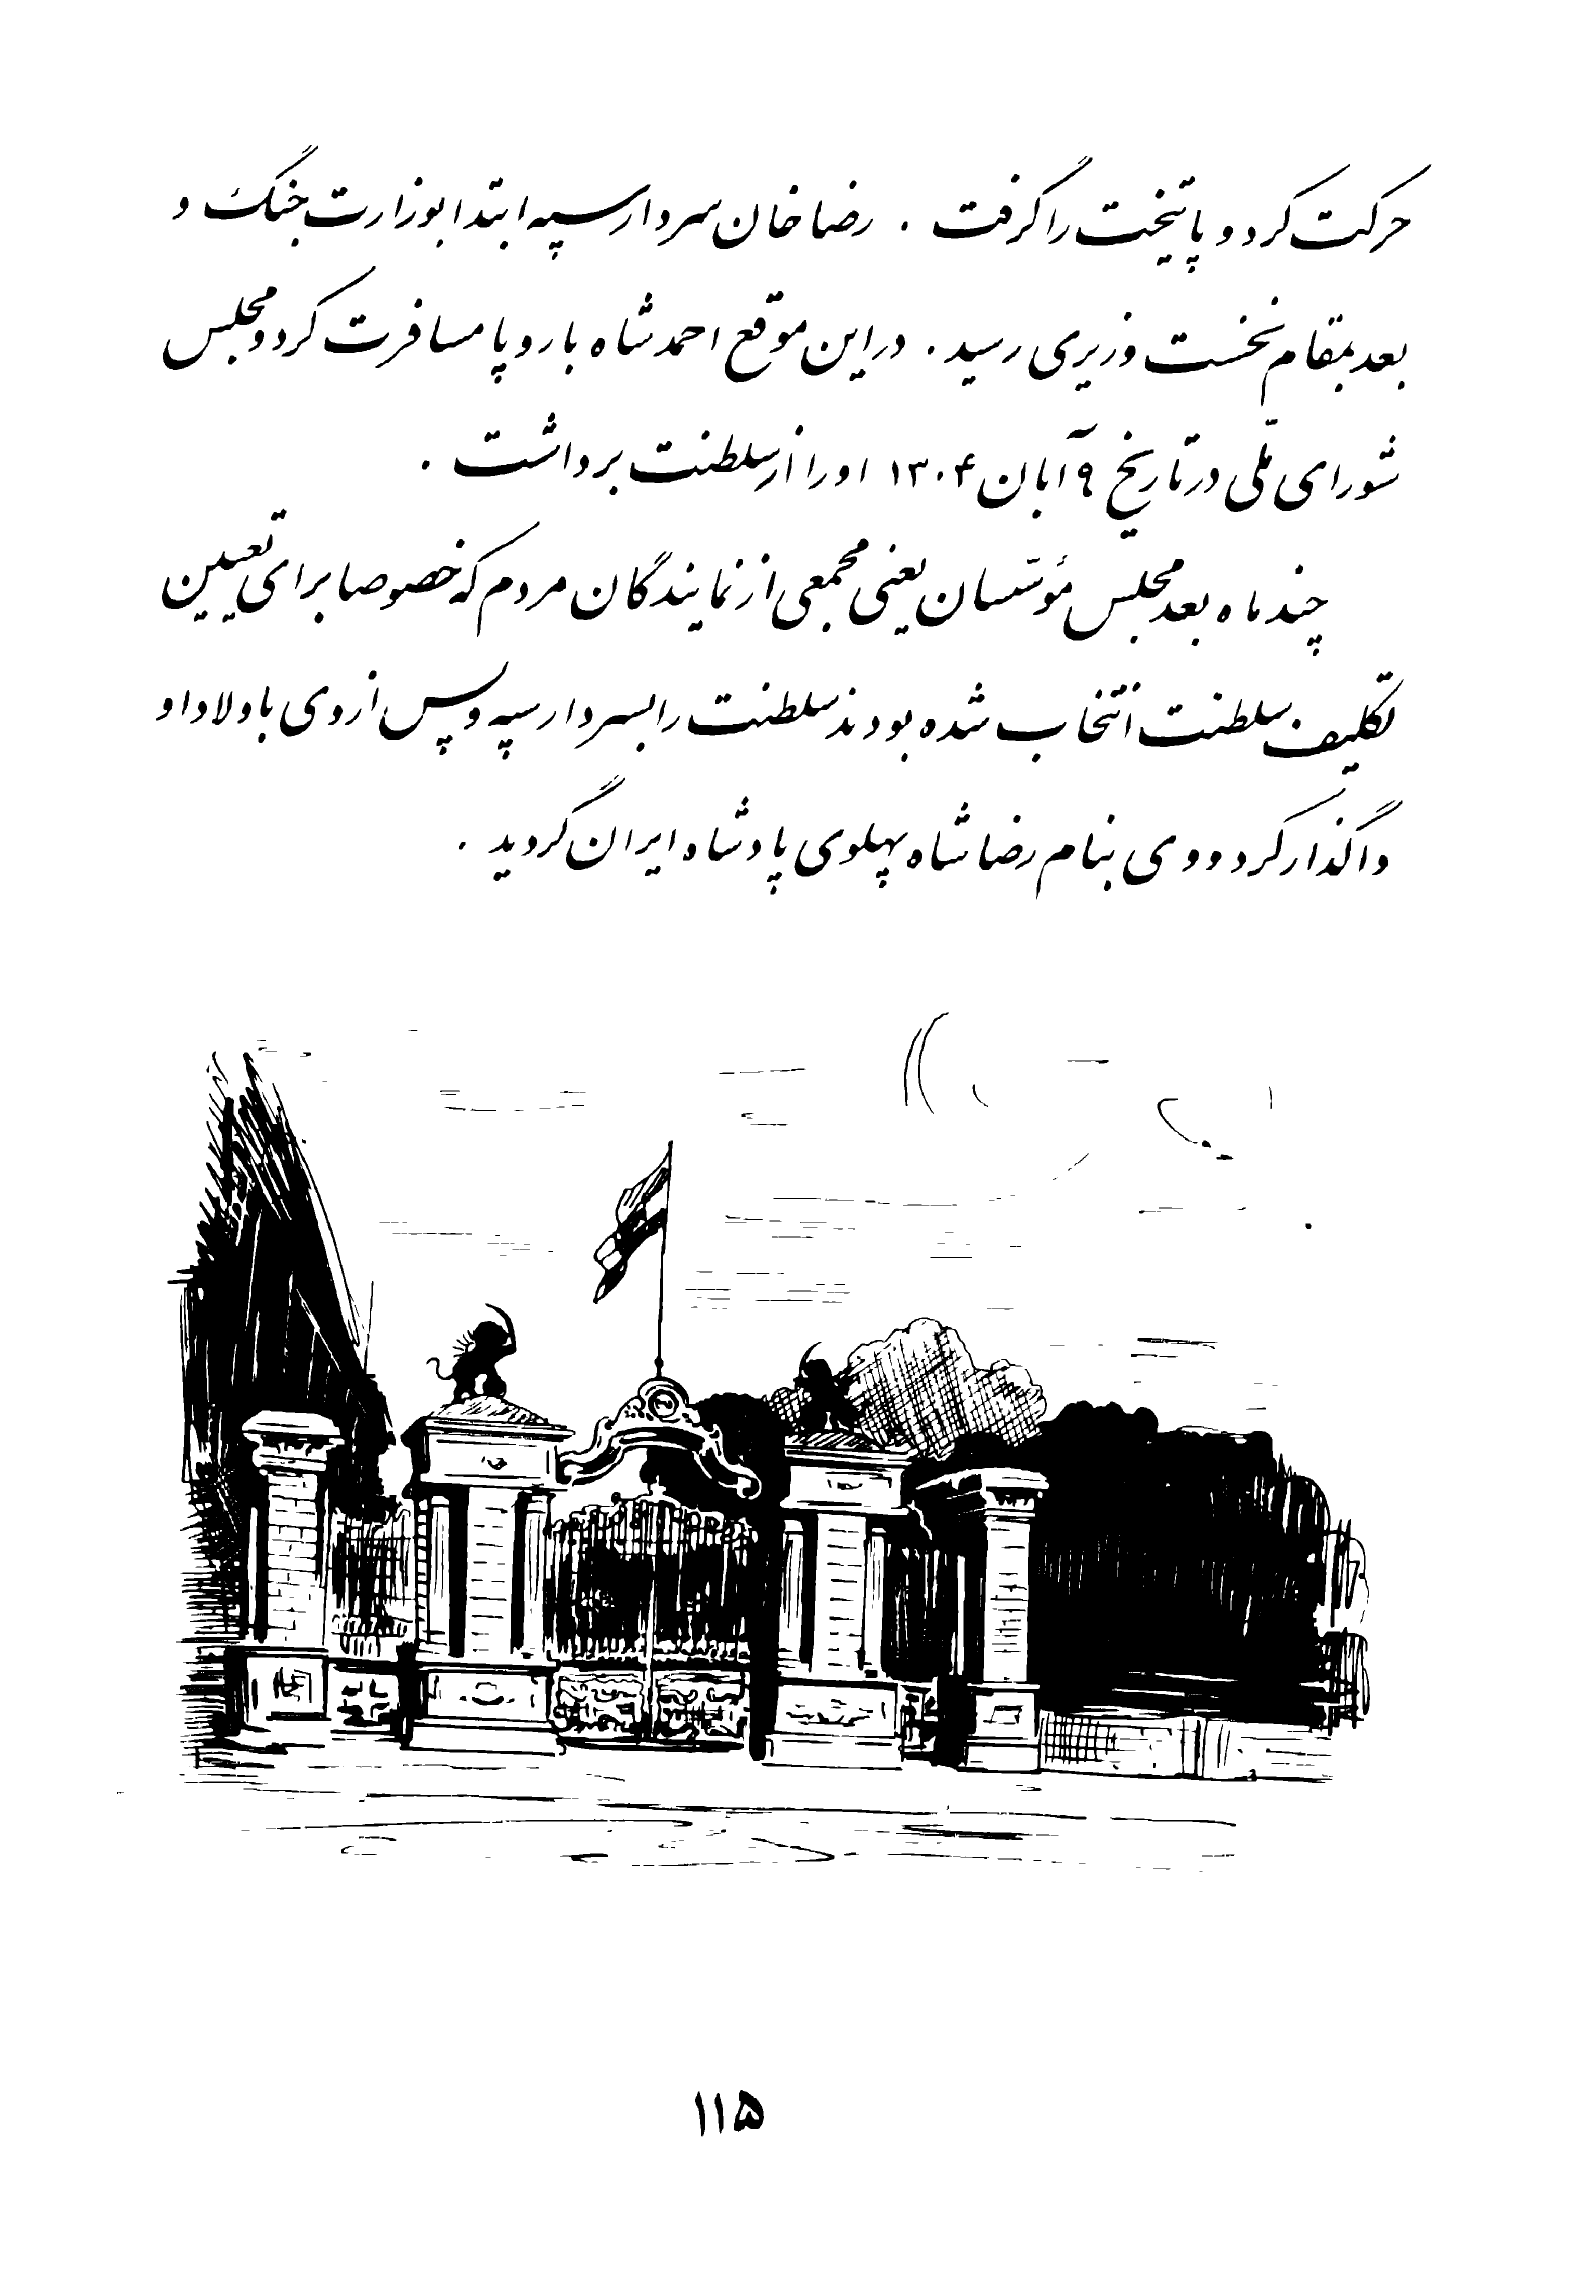 حرکت کرد و پایتخت را گرفت . رضا خان سردار سپه ابتدا بوزارت جنگ و
بعد بمقام نخست وزیری رسید . در این موقع احمد شاه باروپا مسافرت کرد و مجلس
شورای ملّی در تاریخ ۹ آبان ۱۳۰۴ او را از سلطنت برداشت .
چند ماه بعد مجلس مؤسّسان یعنی مجمعی از نمایندگان مردم که خصوصا برای تعیین
تکلیف سلطنت انتخاب شده بودند سلطنت را بسردار سپه و پس از وی باولاد او
واگذار کرد و وی بنام رضا شاه پهلوی پادشاه ایران گردید .
۱۱۵